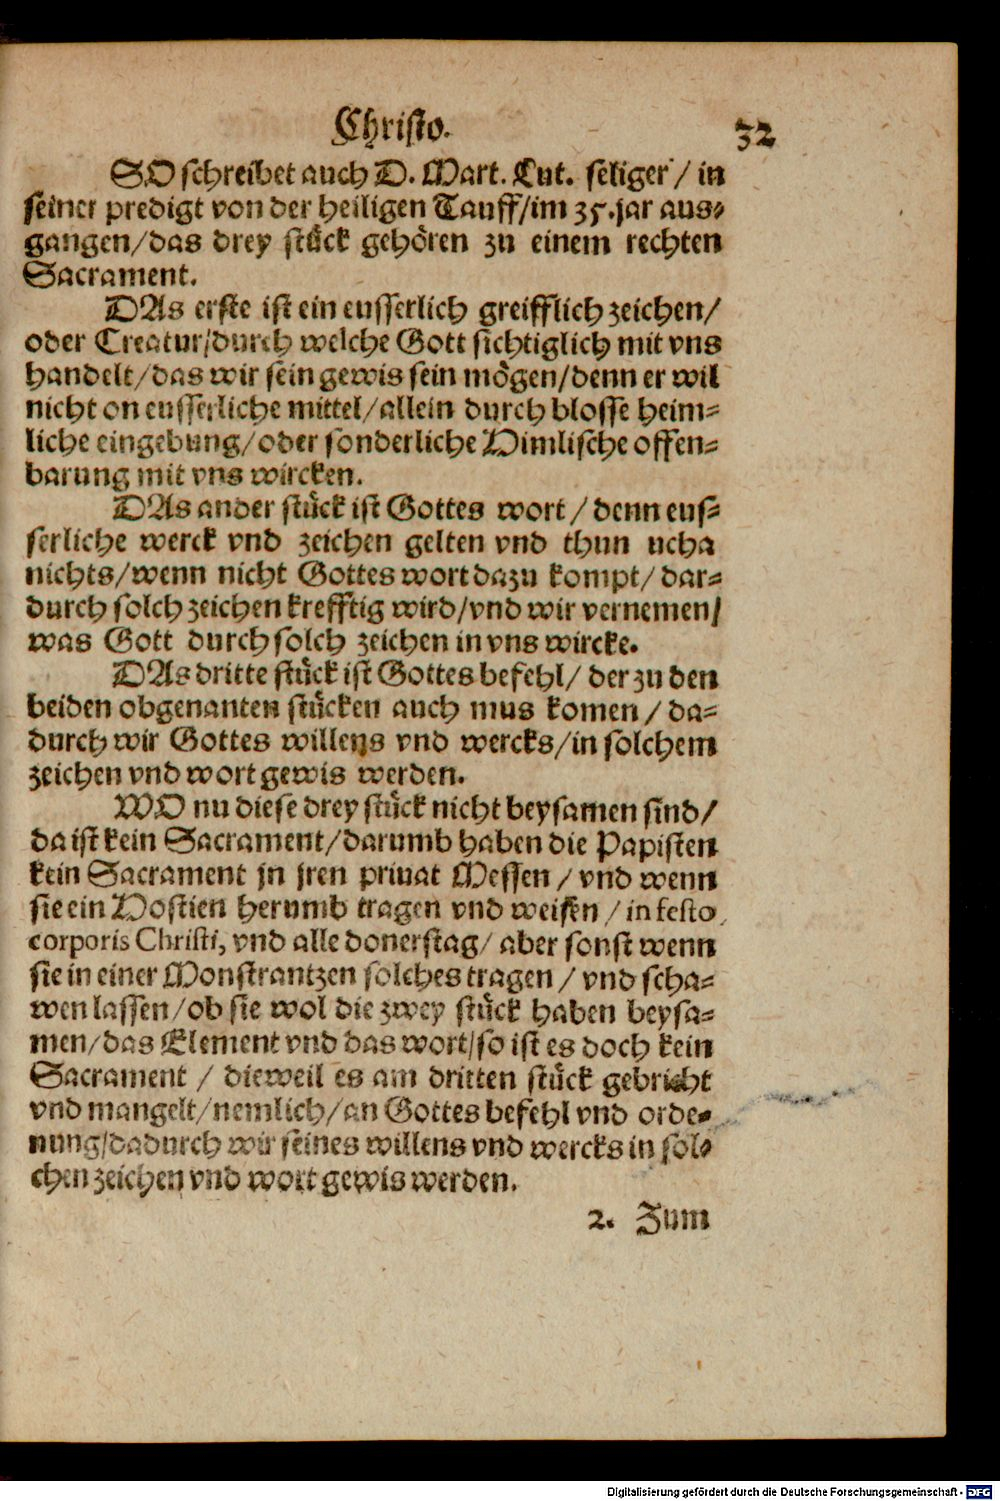 Christo. 32
SO schreibet auch D. Mart. Lut. seliger / in
seiner predigt von der heiligen Tauff/im 35.jar aus⸗
gangen/das drey stuͤck gehoͤren zu einem rechten
Sacrament.
DAs erste ist ein eusserlich greifflich zeichen/
oder Creatur/durch welche Gott sichtiglich mit vns
handelt/das wir sein gewis sein moͤgen/denn er wil
nicht on eusserliche mittel/allein durch blosse heim⸗
liche eingebung/oder sonderliche Himlische offen⸗
barung mit vns wircken.
DAs ander stuͤck ist Gottes wort / denn eus⸗
serliche werck vnd zeichen gelten vnd thun ucha
nichts/wenn nicht Gottes wort dazu kompt/ dar⸗
durch solch zeichen krefftig wird/vnd wir vernemen/
was Gott durch solch zeichen in vns wircke.
DAs dritte stuͤck ist Gottes befehl/ der zu den
beiden obgenanten stuͤcken auch mus komen / da⸗
durch wir Gottes willens vnd wercks/in solchem
zeichen vnd wort gewis werden.
WO nu diese drey stuͤck nicht beysamen sind/
da ist kein Sacrament/darumb haben die Papisten
kein Sacrament jn jren priuat Messen / vnd wenn
sie ein Hostien herumb tragen vnd weisen / in festo
corporis Christi, vnd alle donerstag/ aber sonst wenn
sie in einer Monstrantzen solches tragen / vnd scha⸗
wen lassen/ob sie wol die zwey stuͤck haben beysa⸗
men/das Element vnd das wort/so ist es doch kein
Sacrament / dieweil es am dritten stuͤck gebricht
vnd mangelt/nemlich/an Gottes befehl vnd orde⸗
nung/dadurch wir seines willens vnd wercks in sol⸗
chen zeichen vnd wort gewis werden.
2. Zum
Digitalisierung gefördert durch die Deutsche Forschungsgemeinschaft - DFG